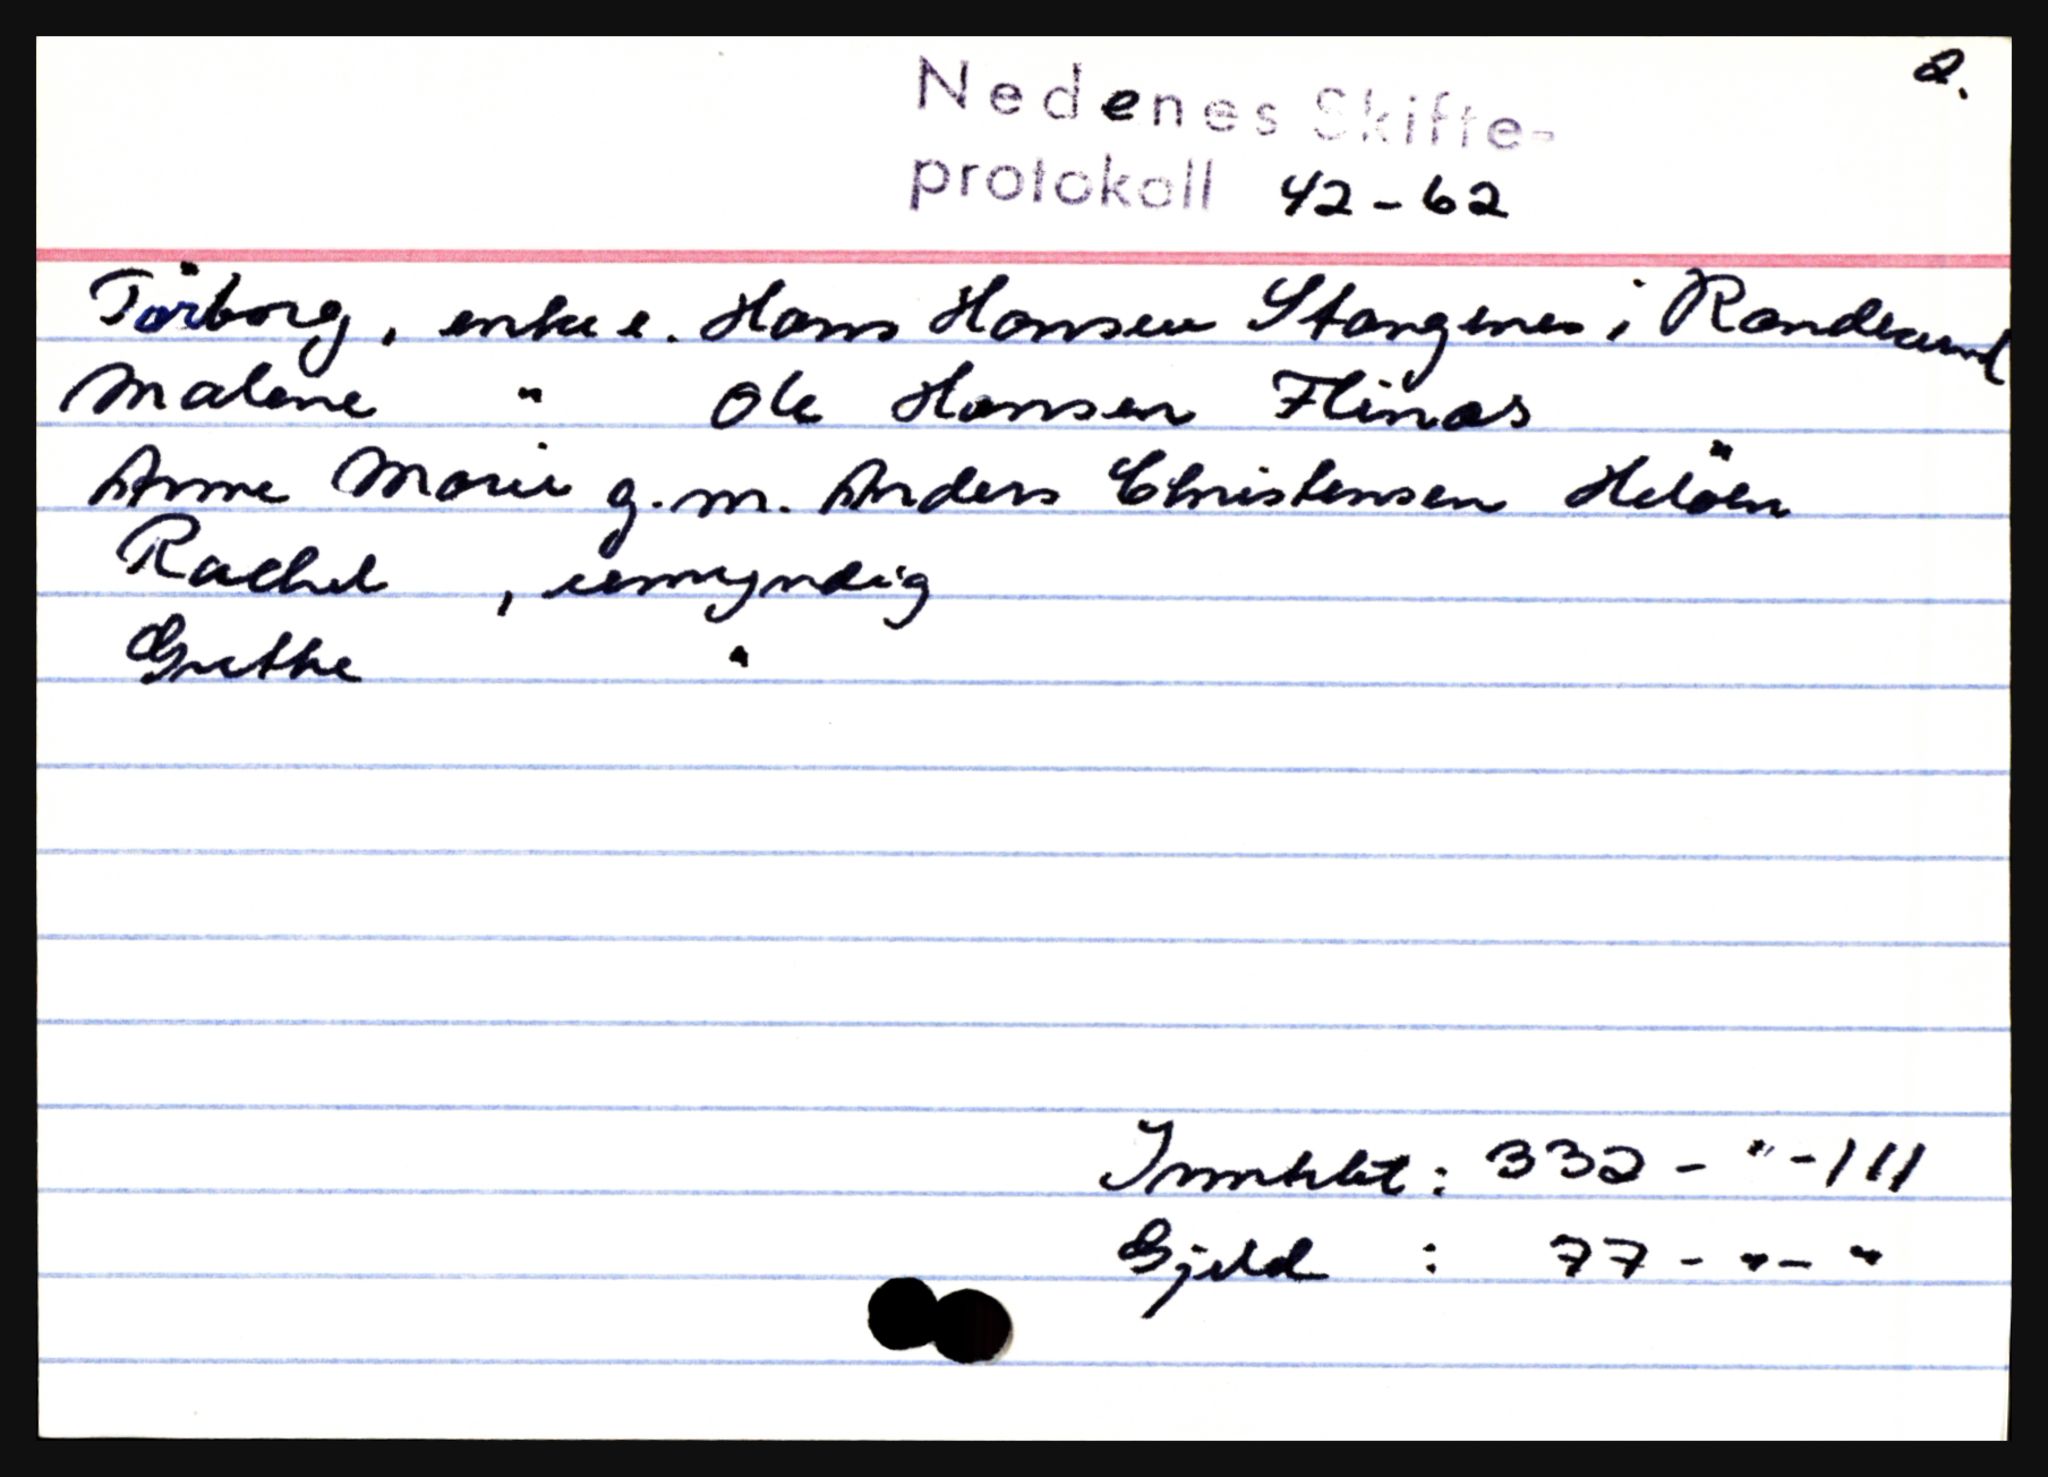 2.
Nedenes Skifte-
protokoll 42-62
Törborg, enke e. Hans Hansen Stangenes i Randesund
Malene " Ole Hansen Flinas
Anne Marie g.m. Anders Christensen Helöen
Rachel , umyndig
Grethe "
Inntekt: 332 - " - 111
Gjeld : 77 - " - "